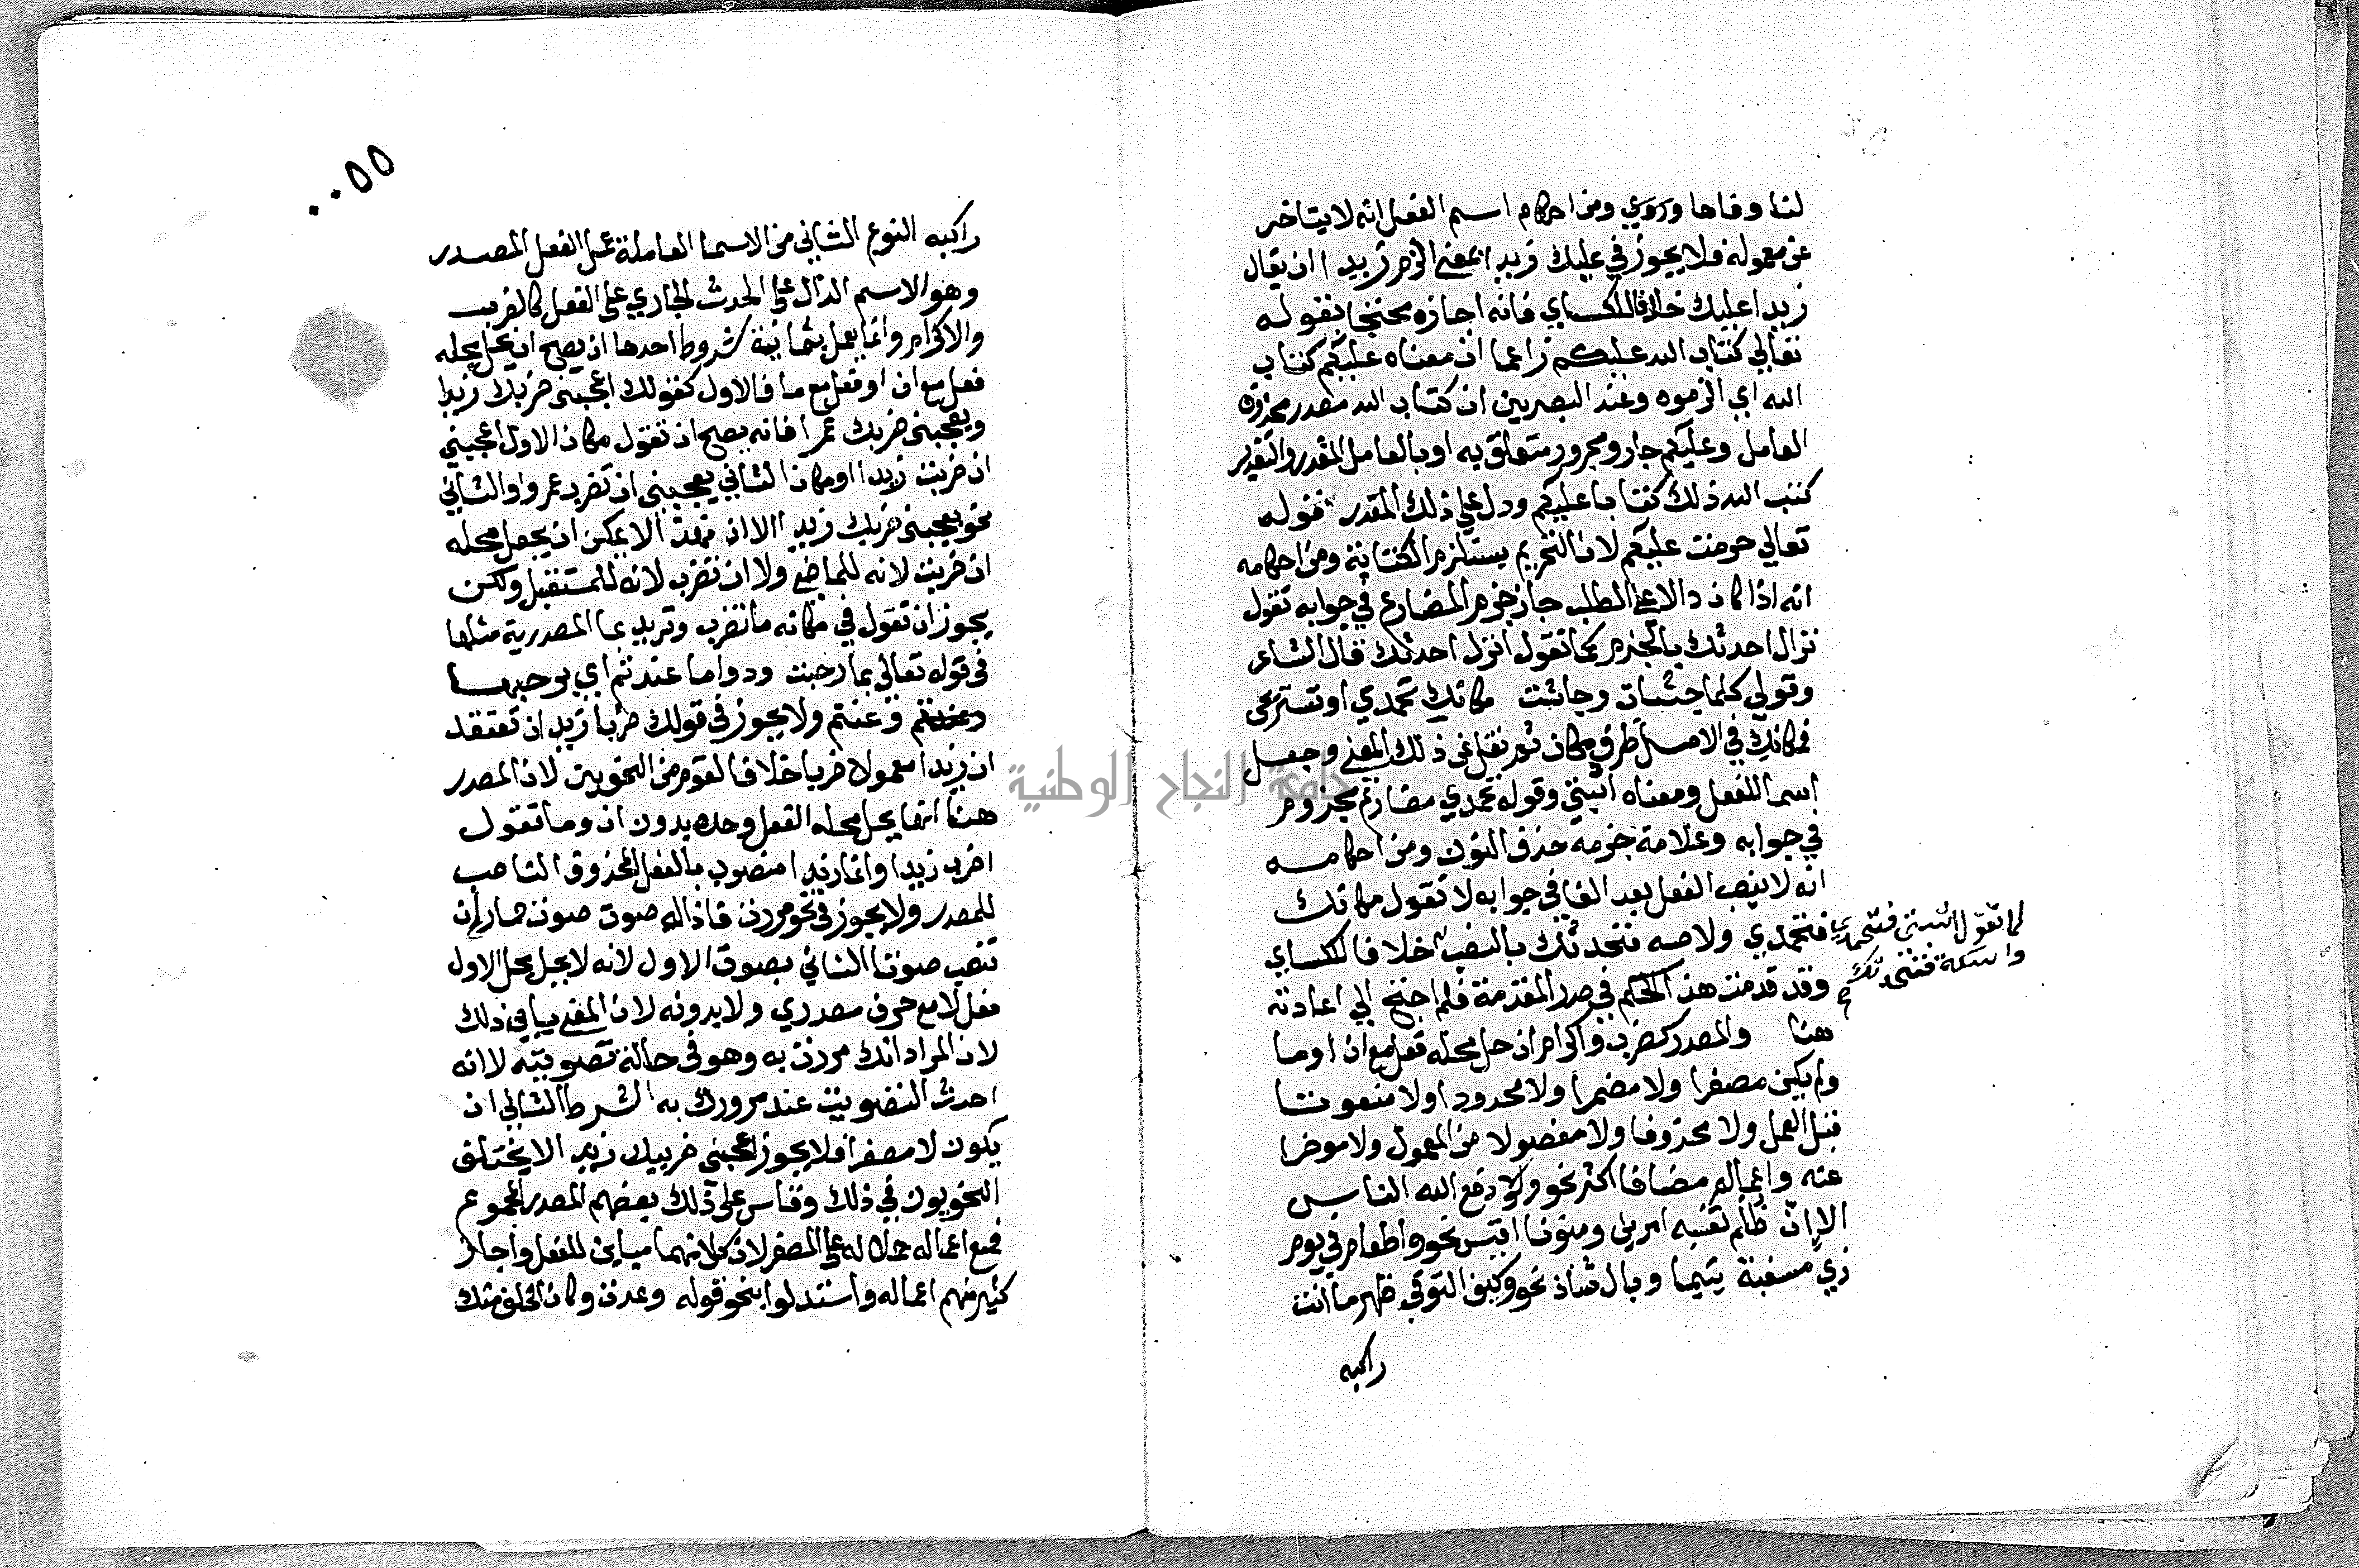 لنا وفاها وروي ومن احكام اسم الفعل انه لا يتاخر
عن معموله فلا يجوز في عليك زيدا بمعنى الزم زيدا ان يقال
زيدا عليك خلافا للكساي فانه اجازه محتجا بقوله
تعالي كتاب الله عليكم زاعما ان معناه عليكم كتاب
الله اي الزموه وعند البصريين ان كتاب الله مصدر محذوف
العامل وعليكم جار ومجرور متعلق به او بالعامل المقدر والتقدير
كتب الله ذلك كتابا عليكم ودل علي ذلك المقدر قوله
تعالي حرمت عليكم لان التحريم يستلزم الكتابة ومن احكامه
انه اذا كان دالا علي الطلب جاز جزم المضارع في جوابه تقول
نزال احدثك بالجزم كما تقول انزل احدثك قال الشاعر
وقولي كلما جشات وجاشت مكانك تحمدي او تستريحي
فمكانك في الاصل ظرف مكان ثم نقل عن ذلك المعني وجعل
اسما للفعل ومعناه اثبتي وقوله تحمدي مضارع مجزوم
في جوابه وعلامة جزمه حذف النون ومن احكامه
انه لا ينصب الفعل بعد الفا في جوابه لا تقول مكانك
فتحمدي ولا صه فنحدثك بالنصب خلافا للكساي
كما تقول اثبتي فتحمدي
واسكت فنحدثك
وقد قدمت هذا الحكم في صدر المقدمة فلم احتج الي اعادته
هنا والمصدر كضرب واكرام ان حل محله فعل مع ان او ما
ولم يكن مصغرا ولا مضمرا ولا محدودا ولا منعوتا
قبل العمل ولا محذوفا ولا مفصولا من المعمول ولا موخرا
عنه واعماله مضافا اكثر نحو ولولا دفع الله الناس
الا ان ظلم نفسه المرء ومنونا اقيس نحو او اطعام في يوم
ذي مسغبة يتيما وبال شاذ نحو وكيف التوقي ظهر ما انت
راكبه
٥٥
راكبه النوع الثاني من الاسما العاملة عمل الفعل المصدر
وهو الاسم الدال علي الحدث الجاري علي الفعل كالضرب
والاكرام وانما يعمل بثمانية شروط احدها ان يصح ان يحل محله
فعل مع ان او فعل مع ما فالاول كقولك اعجبني ضربك زيدا
ويعجبني ضربك عمرا فانه يصح ان تقول مكان الاول اعجبني
ان ضربت زيدا او مكان الثاني يعجبني ان تضرب عمروا والثاني
نحو يعجبني ضربك زيدا الان فهذا لا يمكن ان يجعل محله
ان ضربت لانه للماضي ولا ان تضرب لانه للمستقبل ولكن
يجوز ان تقول في مكانه ما تضرب وتريد بما المصدرية مثلها
في قوله تعالي بما رحبت ودوا ما عنتم اي برحبها
وعنتم ولا يجوز في قولك ضربا زيدا ان تعتقد
ان زيدا معمولا ضربا خلافا لقوم من النحويين لان المصدر
هنا انما يحل محله الفعل وحده بدون ان وما تقول
اضرب زيدا وانما زيدا منصوب بالفعل المحذوف الناصب
للمصدر ولا يجوز في نحو مررت فاذا له صوت صوت حمار ان
تنصب صوتا الثاني بصوت الاول لانه لا يحل محل الاول
فعل لا مع حرف مصدري ولا بدونه لان المعني يابي ذلك
لان المراد انك مررت به وهو في حالة تصويته لا انه
احدث التصويت عند مرورك به الشرط الثاني ان
يكون لا مصغرا فلا يجوز اعجبني ضريبك زيدا لا يختلف
النحويون في ذلك وقاس علي ذلك بعضهم المصدر المجموع
فمنع اعماله حملا له علي المصغر لان كلا منهما مباين للفعل واجاز
كثير منهم اعماله واستدلوا بنحو قوله وعدت وكان الخلف منك
جامعة النجاح الوطنية